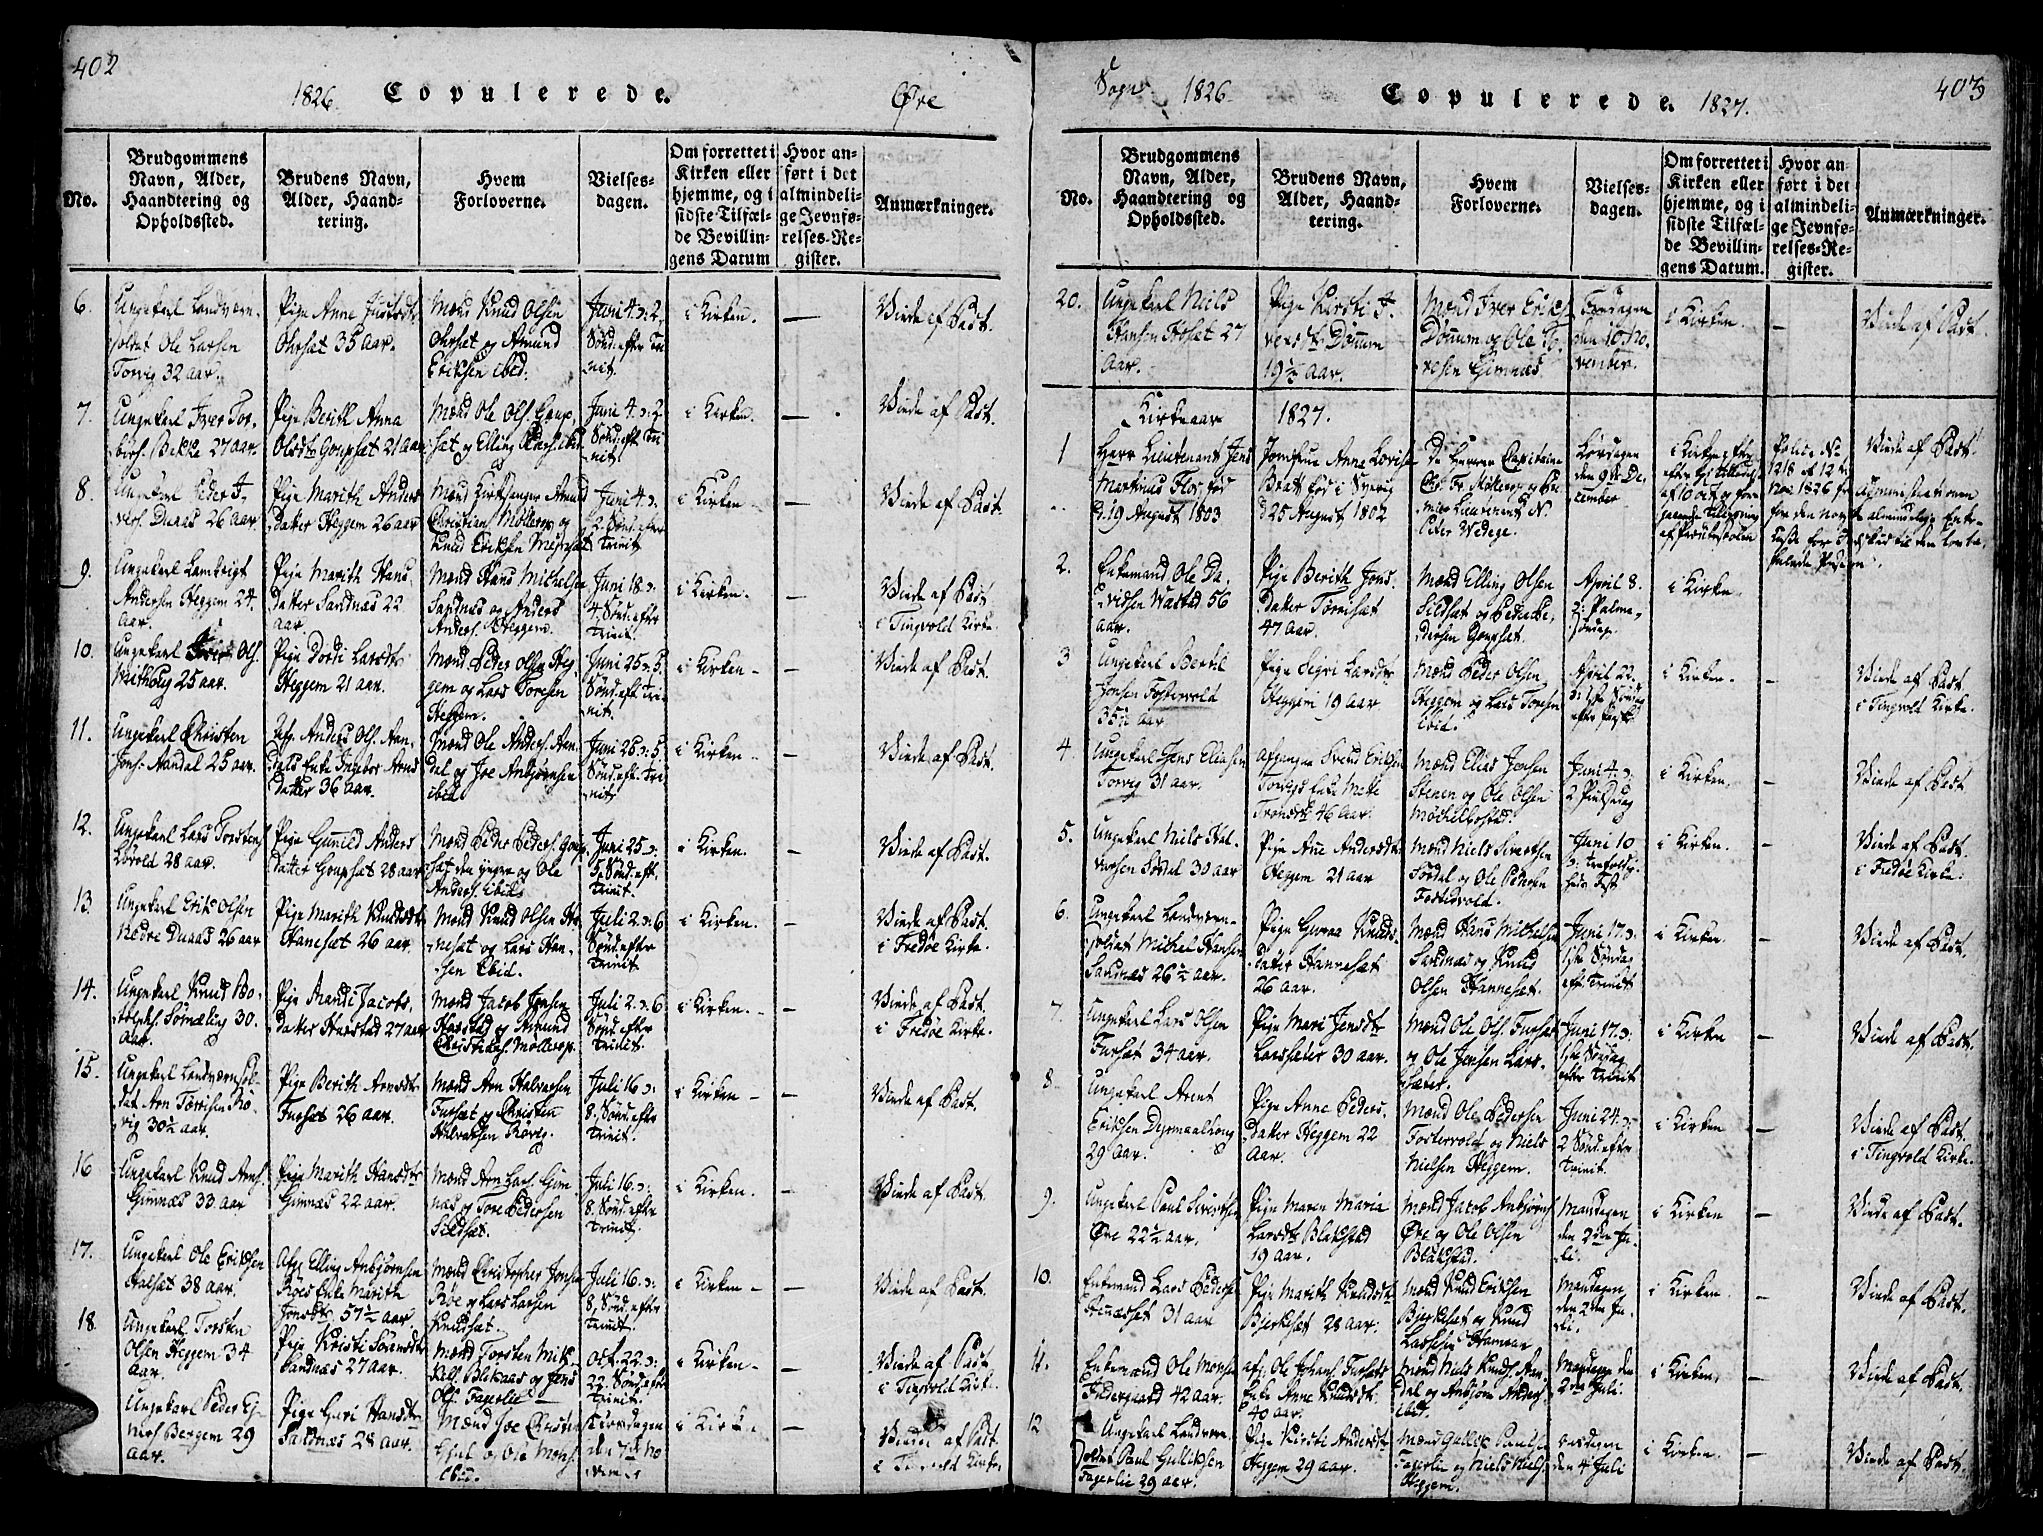 402
1826.
Copulerede.
Øre
No.
Brudgommens Navn, Alder, Haandtering og Opholdssted.
Brudens Navn, Alder, Haandtering.
Hvem Forloverne.
Vielses-dagen.
Om forrettet i Kirken eller hjemme, og i sidste Tilfælde Bevillingens Datum
Hvor anført i det almindelige Jevnførelses-Register.
Anmærkninger.
6.
Ungekarl Landværn-
soldat Ole Larsen
Torvig 32 aar.
Pige Anne
Ohrset 35 aar.
Mænd Knud Olsen
Ohrset og Amund
Eriksen ibid.
Juni 4. ɔ: 2
Sønd. efter Tri-
nit.
i Kirken.
—
Viede af Past.
7.
Ungekarl Iver Tor-
Bekke 27 aar.
Pige Berith Anna
Olsdtr 21 aar
Mænd Ole Ols.
Juni 4. ɔ: 2
Sønd. eft Tri-
nit.
i Kirken.
—
Viede af Past.
8.
Peder I-
vers. Duaas 26 aar.
Pige Marith Anders
datter Heggem 26 aar
Mænd Kirksanger Amund
Christian Møllerop og
Knud Eriksen
Juni 4 ɔ:
2. Sønd. efter
Trinit
i Kirken —
—
Viede af Past.
9.
Ungekarl
Andersen Heggem 24.
aar.
Pige Marith Hans
datter Sandnæs 22
aar.
Mænd Hans Mithelsen
Sandnæs og Anders
Anders. Heggem.
Juni 18 ɔ:
4. Sønd. efter
Trinit.
i Kirken.
—
Viede af Past
i Tingvold Kirke.
10.
Ungekarl Ols.
25 aar.
Pige Dordi Larsdtr
Heggem 21 aar.
Mænd Peder Olsen Heg-
gem og Lars Toresen
Heggem.
Juni 25 ɔ: 5.
Sønd. eft Tri-
nit.
i Kirken —
—
Viede af Past.
11.
Ungekarl Christen
Jons. Aandal 25 aar.
Anders Ols. Aan-
dals Enke Ingebor Arns
datter 36 aar.
Mænd Ole Anders. Aan-
dal og Joe Anbjørnsen
ibid
Juni 25 ɔ: 5.
Sønd. eft. Tri-
nit
i Kirken —
—
Viede af Past.
12.
Ungekarl Lars Torstens
28 aar.
Pige Gunild Anders
datter 28 aar
Mænd Peder Peders.
den yngre og Ole
Anders. ibid.
Juni 25 ɔ:
5 Sønd. eft.
Trinit.
i Kirken.
—
Viede af Past.
13.
Ungekarl Erik Olsen
Nedre Duaas 26 aar
Pige Marith Knudsdtr
Hanesæt 26 aar.
Mænd Knud Olsen Ha-
nesæt og Lars Han-
sen ibid.
Juli 2. ɔ: 6
Sønd. efter
Trinit.
i Kirken.
—
Viede af Past.
i Fredøe Kirke.
14.
Ungekarl Knud Bo-
30.
aar.
Pige Randi Jacobs.
datter Harstad 27 aar
Mænd Jacob Jonsen
Harstad og Amund
Christian Møllerop.
Juli 2. ɔ: 6
Sønd. efter
Trinit.
i Kirken. —
—
Viede af Past.
i Fredøe Kirke.
15.
Ungekarl Landværnsol-
dat Arn Torrisen Rø-
vig 30½ aar.
Pige Berith Arnsdtr
Fursæt 26 aar.
Mænd Arn Halvorsen
Fursæt og Christen
Halvorsen Røvig.
Juli 16 ɔ:
8. Sønd. efter
Trinit.
i Kirken —
—
Viede af Past.
16
Ungekarl Knud Arns.
Gimnæs 33 aar
Pige Marith Hansdtr
Gimnæs 22 aar.
Mænd Arn Lars. Gim
næs og Tore Pedersen
Sildset.
Juli 16. ɔ:
8. Sønd. efter
Trinit
i Kirken.
—
Viede af Past.
17.
Ungekarl Ole Eriksen
38 aar.
Afg. Elling Anbjørnsen
Røes Enke Marith
Jonsdtr. 57½ aar
Mænd Christopher Jonsen
Røe og Lars Larsen
Knudset.
Juli 16. ɔ:
8. Sønd. efter
Trinit
i Kirken —
—
Viede af Past.
18.
Ungekarl Torsten
Olsen Heggem 34
aar.
Pige Kristi
Sandnæs 27 aar.
Mænd Torsten Mik-
kels. Bleknæs og Jens
Ols. Fagerlie
Oct. 22 ɔ:
22. Sønd. efter
Trinit.
i Kirken —
—
Viede af Past
i Tingvold Kirk.
Ungekarl Peder Ej-
Bergem 29
aar.
Pige Guri Hansdtr
Sandnæs 28 aar.
Mænd Joe Christen
og Ole Mons.
ibid.
Torsdagen
den 7de No
vember
i Kirken
—
Viede af Past.
i Tingvold Kirke
Sogn
1826.
Copulerede.
1827.
403
No.
Brudgommens Navn, Alder, Haandtering og Opholdssted.
Brudens Navn, Alder, Haandtering.
Hvem Forloverne.
Vielses-dagen.
Om forrettet i Kirken eller hjemme, og i sidste Tilfælde Bevillingens Datum.
Hvor anført i det almindelige Jevnførelses-Register.
Anmærkninger.
20.
Ungekarl Niels
Hansen 27
aar.
Pige Kirsti I-
versdtr Dønnem
19½ aar.
Mænd Iver Eriks.
Dønnem og Ole
Gimnæs
Torsdagen
den 16. No-
vember.
i Kirken.
—
Viede af Past.
Kirkeaar 1827.
1
Herr Lieutenant Jens
Martinus Flor, fød
d. 19 August 1803
Jomfrue Anna Lovise
Bratt fød i Sverig
d 25 August 1802
De Herrer Capitaine
Chr. Fr. Møllerop og Pre-
mier Lieutenant N.
Peter Wedege.
Lørdagen
den 9de De-
cember
i Kirken efter
Tilladelse
af 10 Oct og fore-
gaaende Tillysning
af Prækestolen
Police No
1218 af 12te
Nov. 1826 fra
for den Norske
Casse for
Viede af Past
Administrationen
almindelige Enke-
2.
Enkemand Ole Da-
vidsen Wastad 56
aar.
Pige Berith Jons
datter Torvisæt
47 aar.
Mænd Elling Olsen
Sildset og Peder Pe-
dersen
April 8.
ɔ: Palme-
søndag.
i Kirken.
3
Ungekarl Bertil
Jonsen Fostervold
35½ aar
Pige Segri Larsdtr
Heggem 19 aar
Mænd Peder Olsen
Heggem og Lars Toresen
ibid.
April 22.
ɔ: 1ste Søndag
efter
i Kirken.
—
Viede af Past
i Tingvold Kirke.
4
Ungekarl Jens Eliasen
Torvig 31 aar.
afgangne Svend Eriksen
Torvigs Enke Mette
Tronsdtr 46 aar.
Mænd Elias Jensen
Stenen og Ole Olsen
Møchelbostad.
Juni 4. ɔ:
2 Pintsedag
i Kirken.
—
Viede af Past
5.
Ungekarl Nils Hal-
vorsen Tørdal 30 aar
Pige Ane Andersdtr
Heggem 21 aar
Mænd Niels Sivertsen
Tordal og Ole
Fostervold.
Juni 10
ɔ: Trefoldig-
heds Fest
i Kirken.
—
Viede af Past.
i Fredøe Kirke.
6.
Ungekarl Landværn-
soldat Michel Hansen
Sandnæs 26½ aar.
Pige Guroe Knuds-
datter Hannesæt
26 aar.
Mænd Hans Mithelsen
Sandnæs og Knud
Olsen Hannesæt.
Juni 17. ɔ:
1ste Søndag
eft. Trinit
i Kirken.
—
Viede af Past.
7.
Ungekarl Lars Olsen
Fursæt 34 aar.
Pige Mari Jensdtr
Larssæter 30 aar.
Mænd Ole Ols. Fursæt
og Ole Jensen Lars-
sæter.
Juni 17. ɔ:
1ste Søndag
efter Trinit
i Kirken
—
Viede af Past.
8.
Ungekarl Arent
Eriksen
29 aar.
Pige Anne Peders-
datter Heggem 22
aar.
Mænd Ole Pedersen
Fostervold og Niels
Nielsen Heggem.
Juni 24. ɔ:
2 Sønd. efter
Trinit.
i Kirken
—
Viede af Past.
i Tingvold Kirke.
9.
Ungekarl Povl Sivertsen
Øre 22½ aar.
Pige Maren Maria
Larsdtr Blakstad
19 aar.
Mænd Jacob Anbjørns
Øre og Ole Olsen
Blakstad.
Mandagen
den 2den Ju-
li.
i Kirken
—
Viede af Past.
10.
Enkemand Lars Peders.
31 aar
Pige Marith Knudsdtr
Bjerkesæt 28 aar.
Mænd Knud Eriksen
Bjerkeset og Knud
Larssen
Mandagen
den 2den Ju-
li.
i Kirken.
—
Viede af Past.
11.
Enkemand Ole Monsen
42 aar.
afg: Ole Johans. Fursæts
Enke Anne Knudsdtr.
40 aar.
Mænd Niels Knuds. Aan-
dal og Anbjørn Anders.
ibid.
Mandagen den
2den Juli.
i Kirken.
—
Viede af Past.
12
Ungekarl Landværn-
soldat Paul Gulliksen
Fagerlie 29 aar.
Pige Kirsti Andersdtr
Heggem 29 aar.
Mænd Gullik Paulsen
Fagerlie og Niels Niels.
Heggem.
Onsdagen
den 4 Juli
i Kirken.
—
Viede af Past.